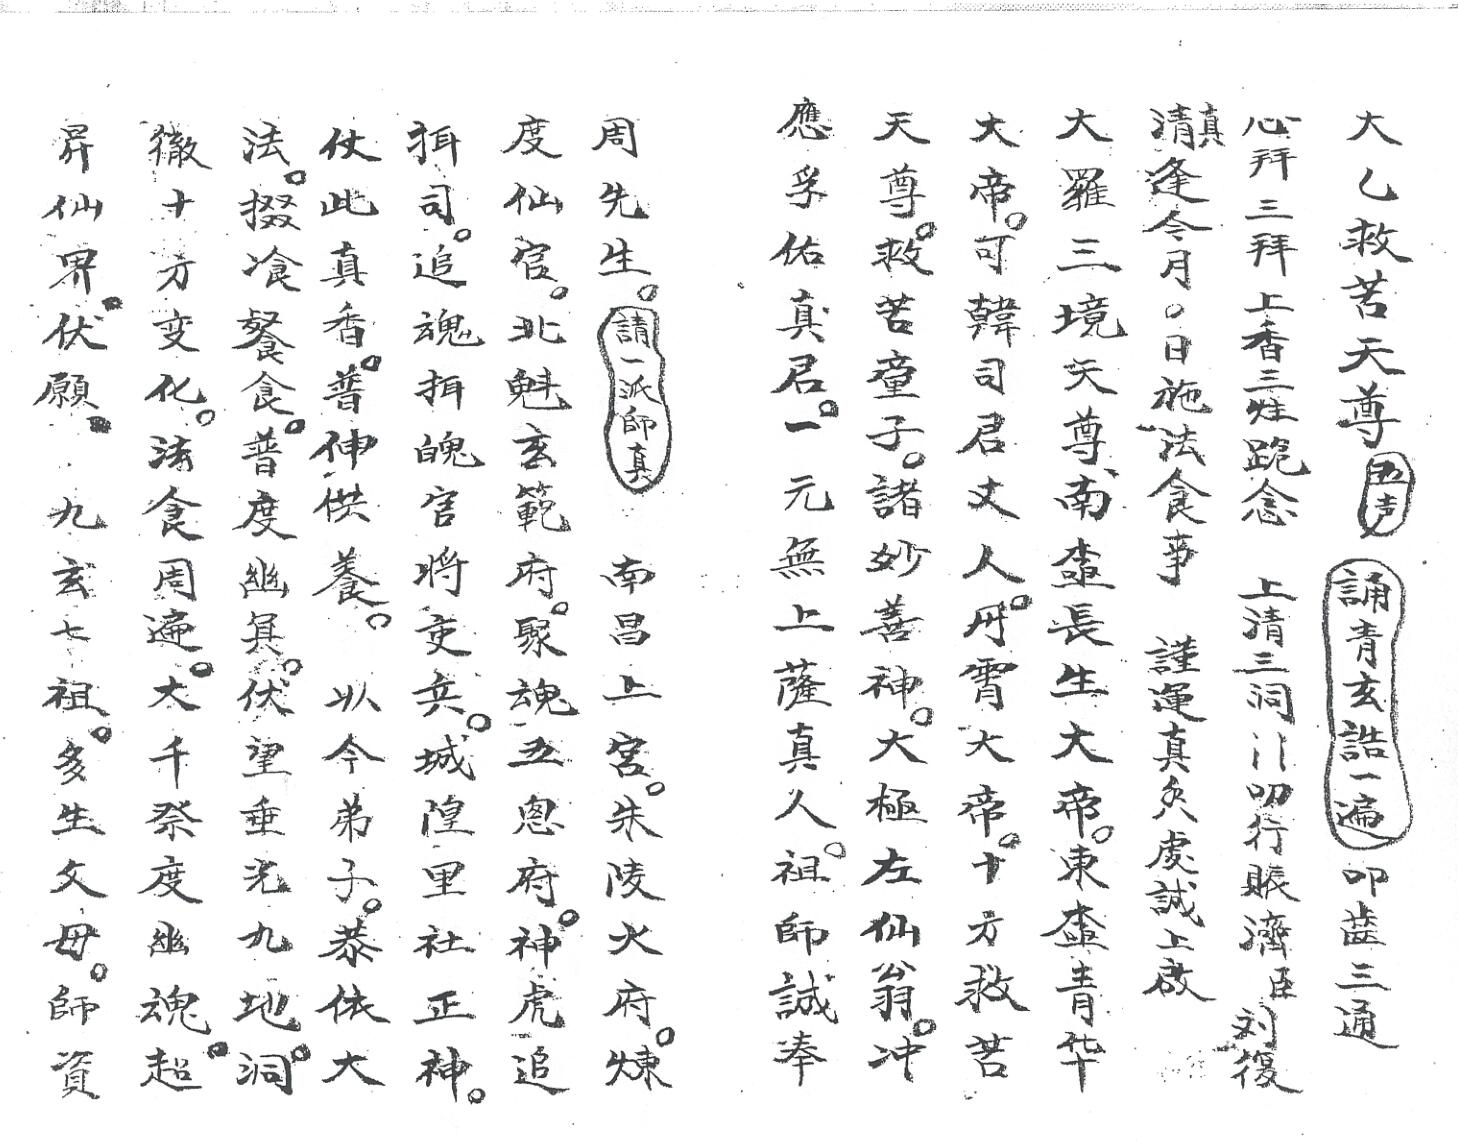 大乙救苦天尊 五声 誦青玄誥一遍 叩齒三通
心拜三拜 上香三炷 跪念 上清三洞 叨行賬濟臣 刘復
真清 逢今月〇日施法食事 謹運真炁虔誠上啟
大羅三境天尊南極長生大帝。東極青华
大帝。可韓司君丈人。丹霄大帝。十方救苦
天尊。救苦童子。諸妙善神。太極左仙翁。冲
應孚佑真君。一元無上薩真人。祖師誠奉
周先生。請一派師真 南昌上宮。朱陵火府。煉
度仙官。北魁玄範府。聚魂五恩府。神虎追
挕司。追魂挕魄官將吏兵。城隍里社正神。
仗此真香。普伸供養。以今弟子。恭依大
法。掇飡餐食。普度幽冥。伏望垂光九地。洞
徹十方变化。法食周遍。大千祭度幽魂。超
昇仙界。伏願。九玄七祖。多生父母。師資